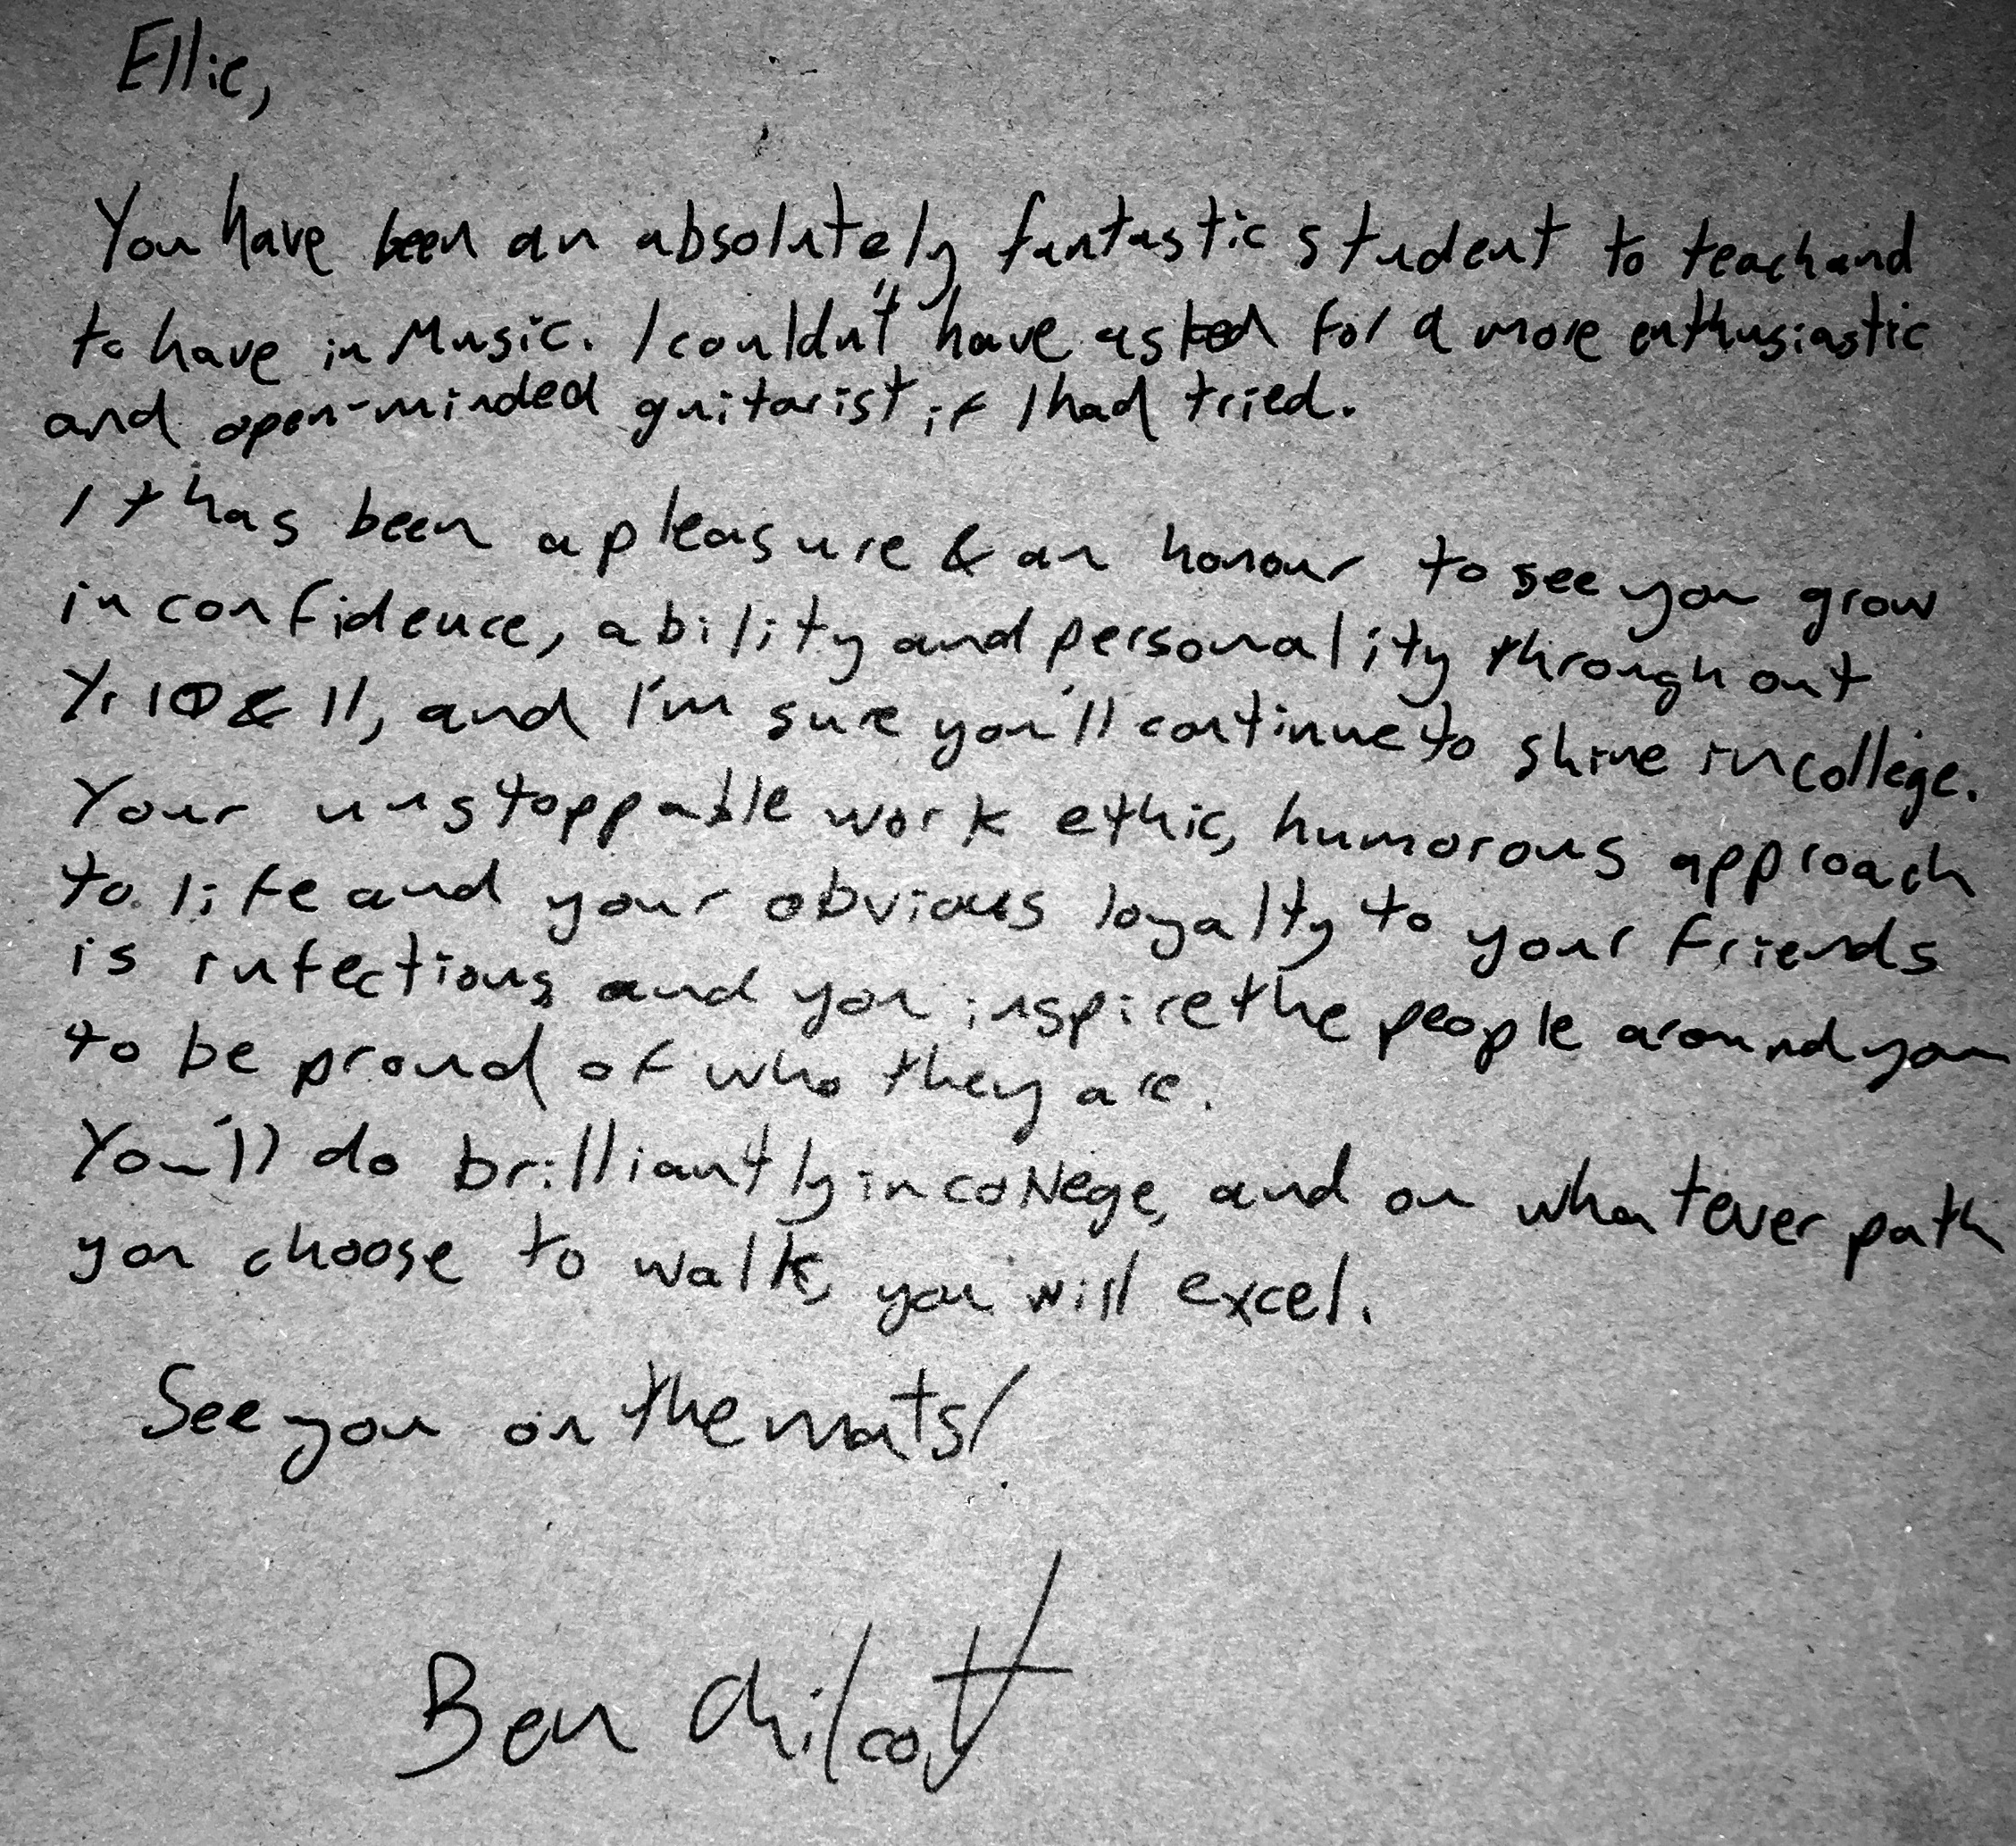 Ellie,
You have been an absolutely fantastic student to teach and
to have in Music. I couldn't have asked for a more enthusiastic
and open-minded guitarist if I had tried.
It has been a pleasure & an honour to see you grow
in confidence, ability and personality throughout
Yr 10 & 11, and I'm sure you'll continue to shine in college.
Your unstoppable work ethic, humorous approach
to life and your obvious loyalty to your friends
is infectious and you inspire the people around you
to be proud of who they are.
You'll do brilliantly in college, and on whatever path
you choose to walk, you will excel.
See you on the mats!
Ben Chilcott